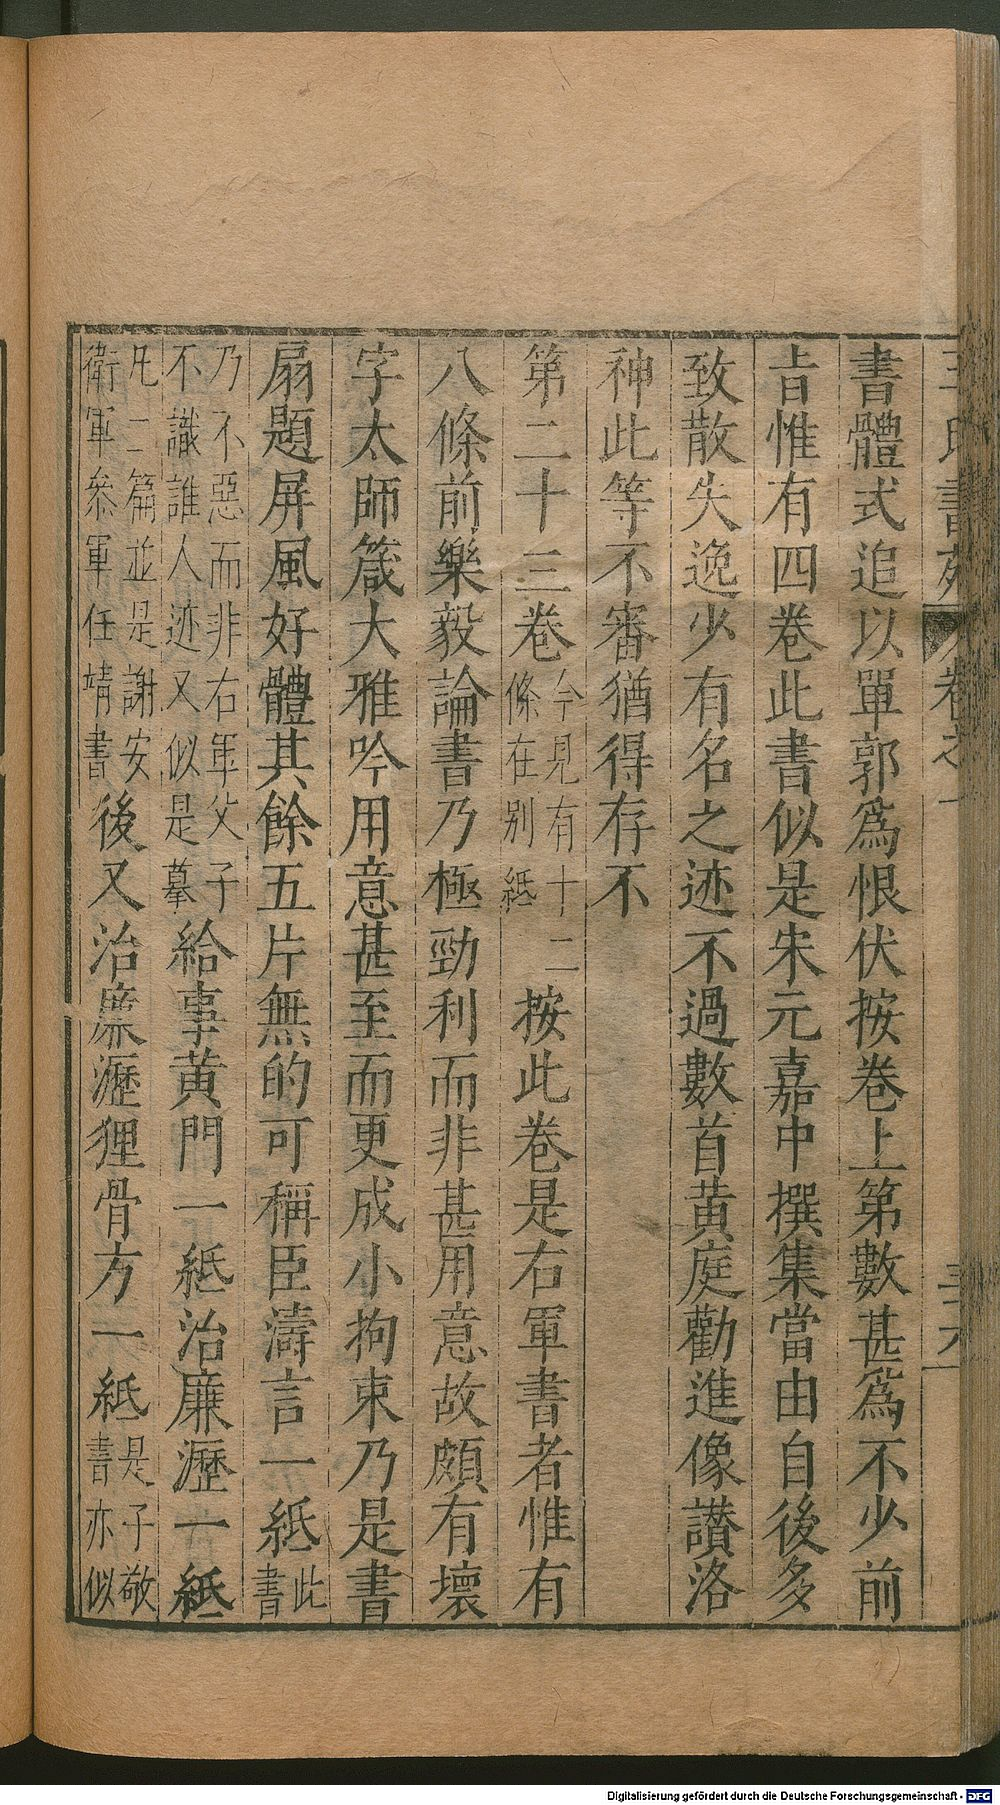 王氏書苑 卷之一 三六
書體式追以單郭爲恨伏按卷上第數甚爲不少前
旨惟有四卷此書似是朱元嘉中撰集當由自後多
致散失逸少有名之迹不過數首黄庭勸進像讃洛
神此等不審猶得存不
第二十三卷今見有十二條在别紙按此卷是右軍書者惟有
八條前樂毅論書乃極勁利而非甚用意故頗有壞
字太師箴大雅吟用意甚至而更成小拘束乃是書
扇題屏風好體其餘五片無的可稱臣濤言一紙此書
乃不惡而非右軍父子不識誰人迹又似是摹給事黄門一紙治廉瀝一紙
凡二篇並是謝安衛軍叅軍任靖書後又治廉瀝狸骨方一紙是子敬書亦似
Digitalisierung gefördert durch die Deutsche Forschungsgemeinschaft - DFG